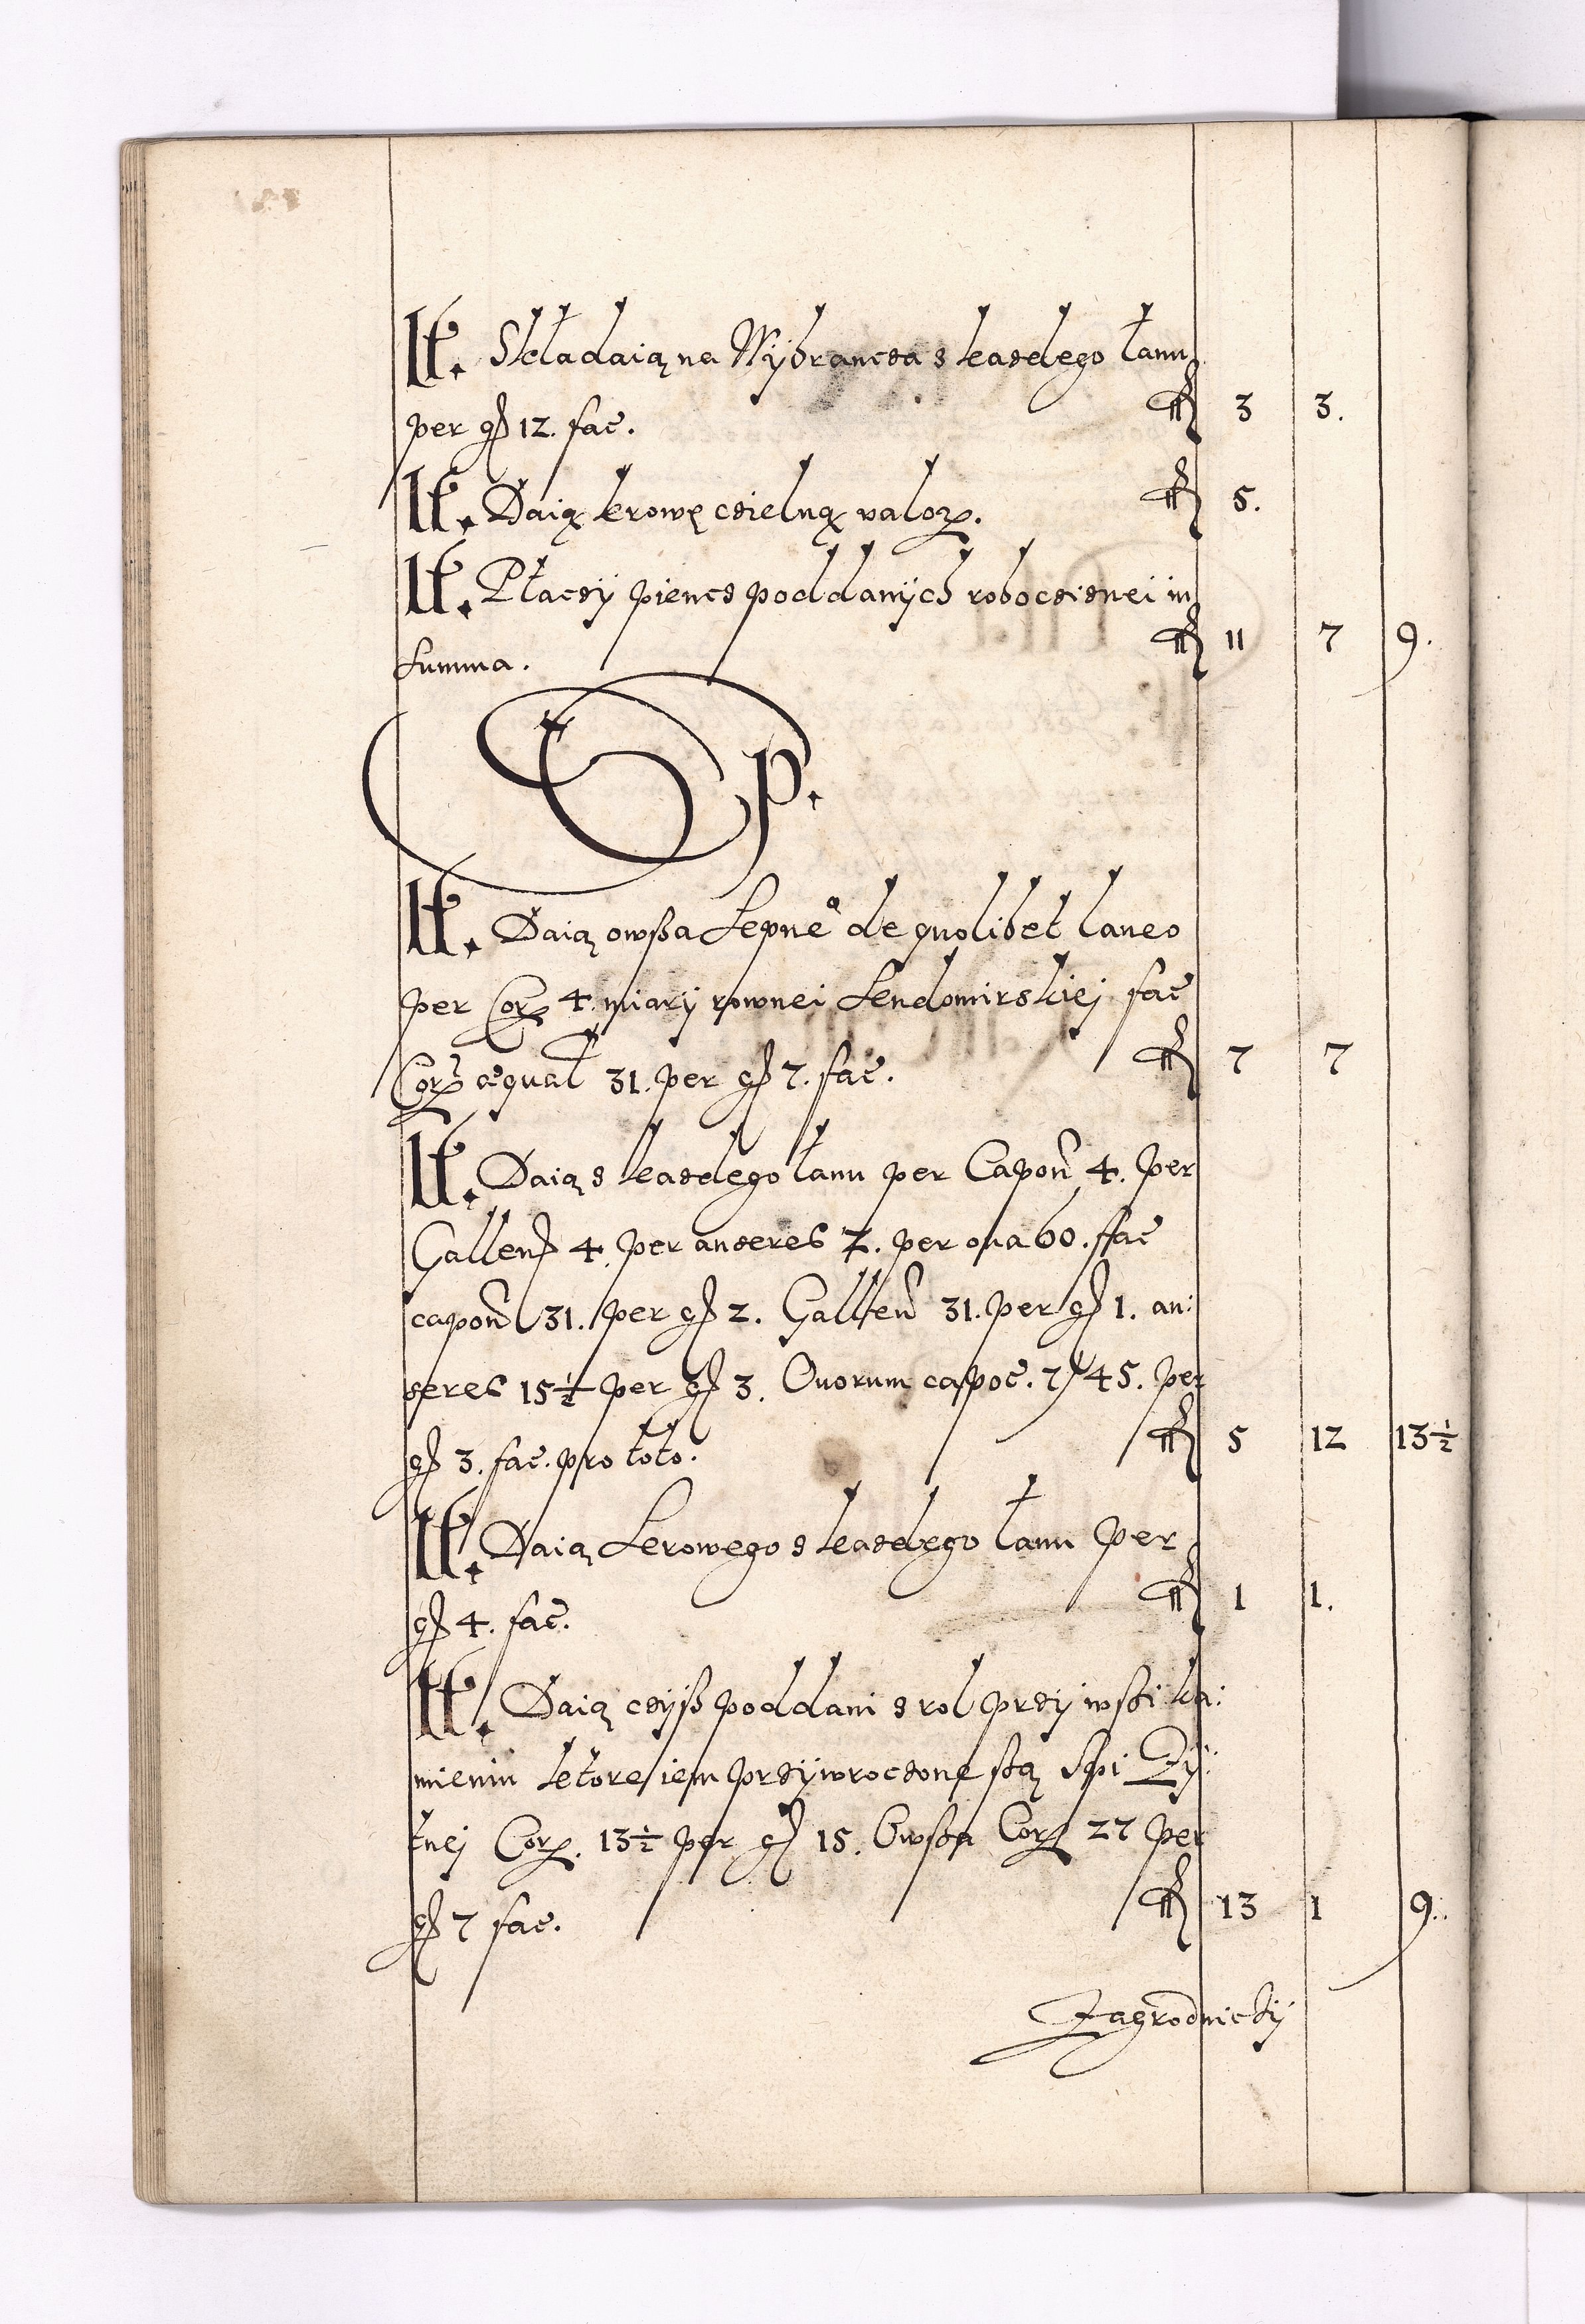 It. Składaią na Wybranca s kazdego łanu
per gr 12. fac. fl 3 3.
It. Daią krowę cielną valor. fl 5.
It. Płaczy pienc poddanych roboczisnei in
summa. fl 11 7 9.
Sp.
It. Daią owsza sepne de quolibet laneo
per Cor 4. miary rownei Sendomirskiej fac
Cor æqual 31. per gr 7. fac. fl 7 7
It. Daią s kazdego łanu per Capon 4. per
Gallen 4. per anseres 2. per oua 60. ffac
capon 31. per gr 2. Gallen 31. per gr 1. an:
seres 15½ per gr 3. Ouorum capoc. 7 45. per
gr 3. fac. pro toto. fl 5 12 13½
It. Daią Serowego s kazdego łanu per
gr 4. fac. fl 1 1.
It. Daią cisz poddani s rol przy wski ka:
mieniu ktore iem przywrocone są Spi Zy:
tnej Cor. 13½ per gr 15. Owsza Cor 27 per
gr 7 fac. fl 13 1 9.
Zagrodnicky